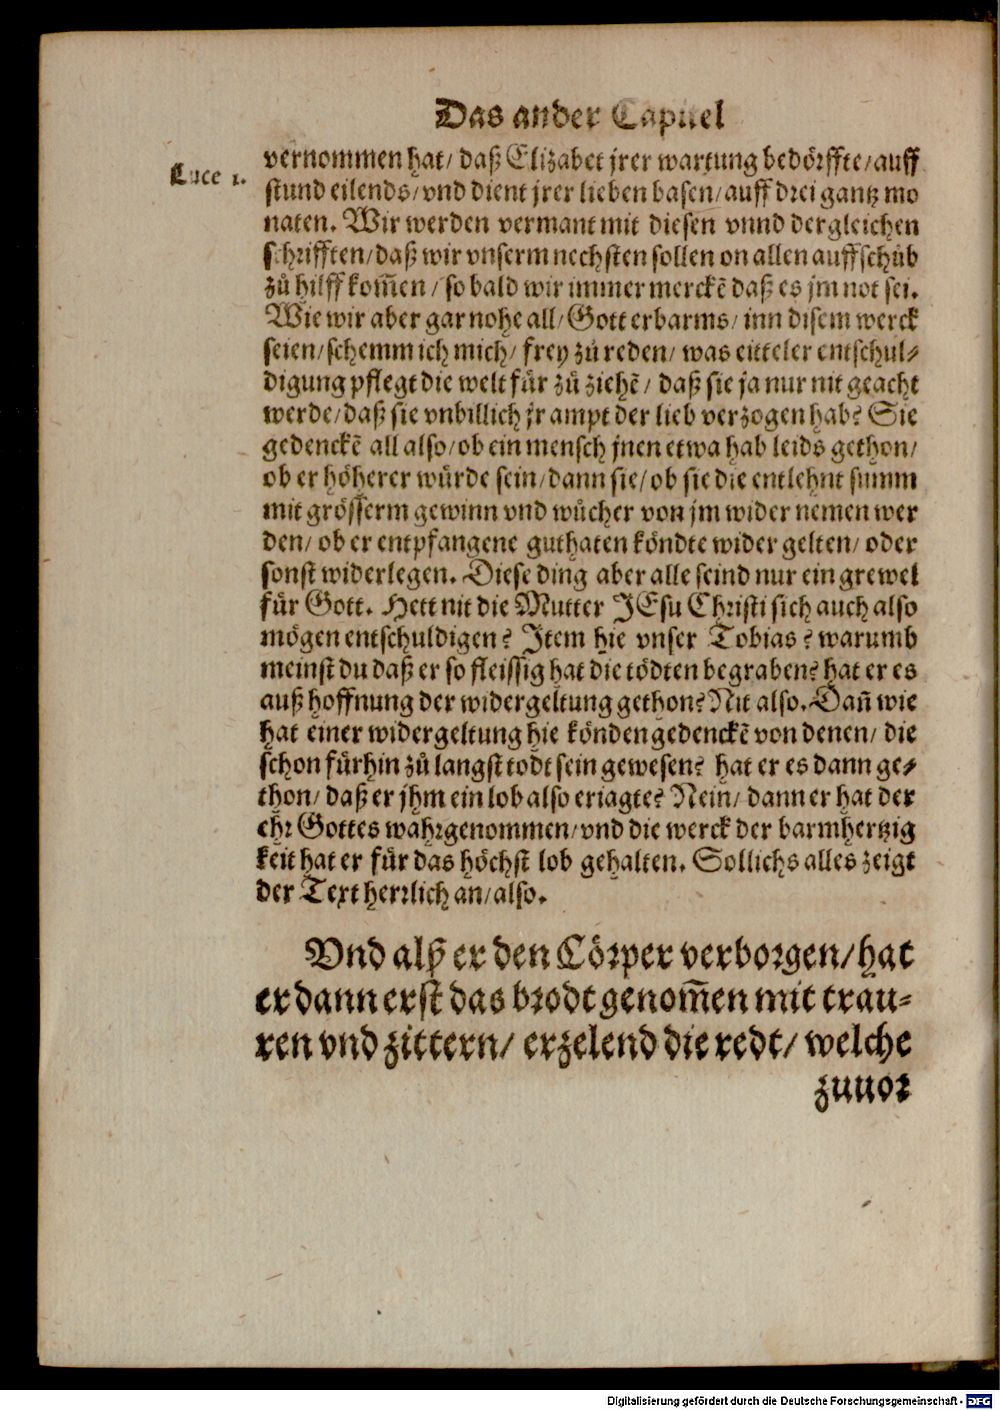 Das ander Capittel
vernommen hat/ daß Elizabet jrer wartung bedörffte/ auff
Luce 1.
stund eilends/ vnd dient jrer lieben basen/ auff drei gantz mo
naten. Wir werden vermant mit diesen vnnd dergleichen
schrifften/ daß wir vnserm nechsten sollen on allen auffschůb
zů hilff kom̃en/ so bald wir immer merckẽ daß es jm not sei.
Wie wir aber gar nohe all/ Gott erbarms/ inn disem werck
seien/ schemm ich mich/ frey zů reden/ was eitteler entschul⸗
digung pflegt die welt für zů ziehẽ/ daß sie ja nur nit geacht
werde/ daß sie vnbillich jr ampt der lieb verzogen hab? Sie
gedenckẽ all also/ ob ein mensch jnen etwa hab leids gethon/
ob er höherer würde sein/ dann sie/ ob sie die entlehnt summ
mit grösserm gewinn vnd wůcher von jm wider nemen wer
den/ ob er entpfangene guthaten köndte wider gelten/ oder
sonst widerlegen. Diese ding aber alle seind nur ein grewel
für Gott. Hett nit die Mutter JEsu Christi sich auch also
mögen entschuldigen? Jtem hie vnser Tobias? warumb
meinst du daß er so fleissig hat die tödten begraben? hat er es
auß hoffnung der widergeltung gethon? Nit also. Dañ wie
hat einer widergeltung hie könden gedenckẽ von denen/ die
schon fürhin zů langst todt sein gewesen? hat er es dann ge⸗
thon/ daß er jhm ein lob also eriagte? Nein/ dann er hat der
ehr Gottes wahrgenommen/ vnd die werck der barmhertzig
keit hat er für das höchst lob gehalten. Sollichs alles zeigt
der Text herrlich an/ also.
Vnd alß er den Cörper verborgen/ hat
er dann erst das brodt genom̃en mit trau⸗
ren vnd zittern/ erzelend die redt/ welche
zuuor
Digitalisierung gefördert durch die Deutsche Forschungsgemeinschaft - DFG